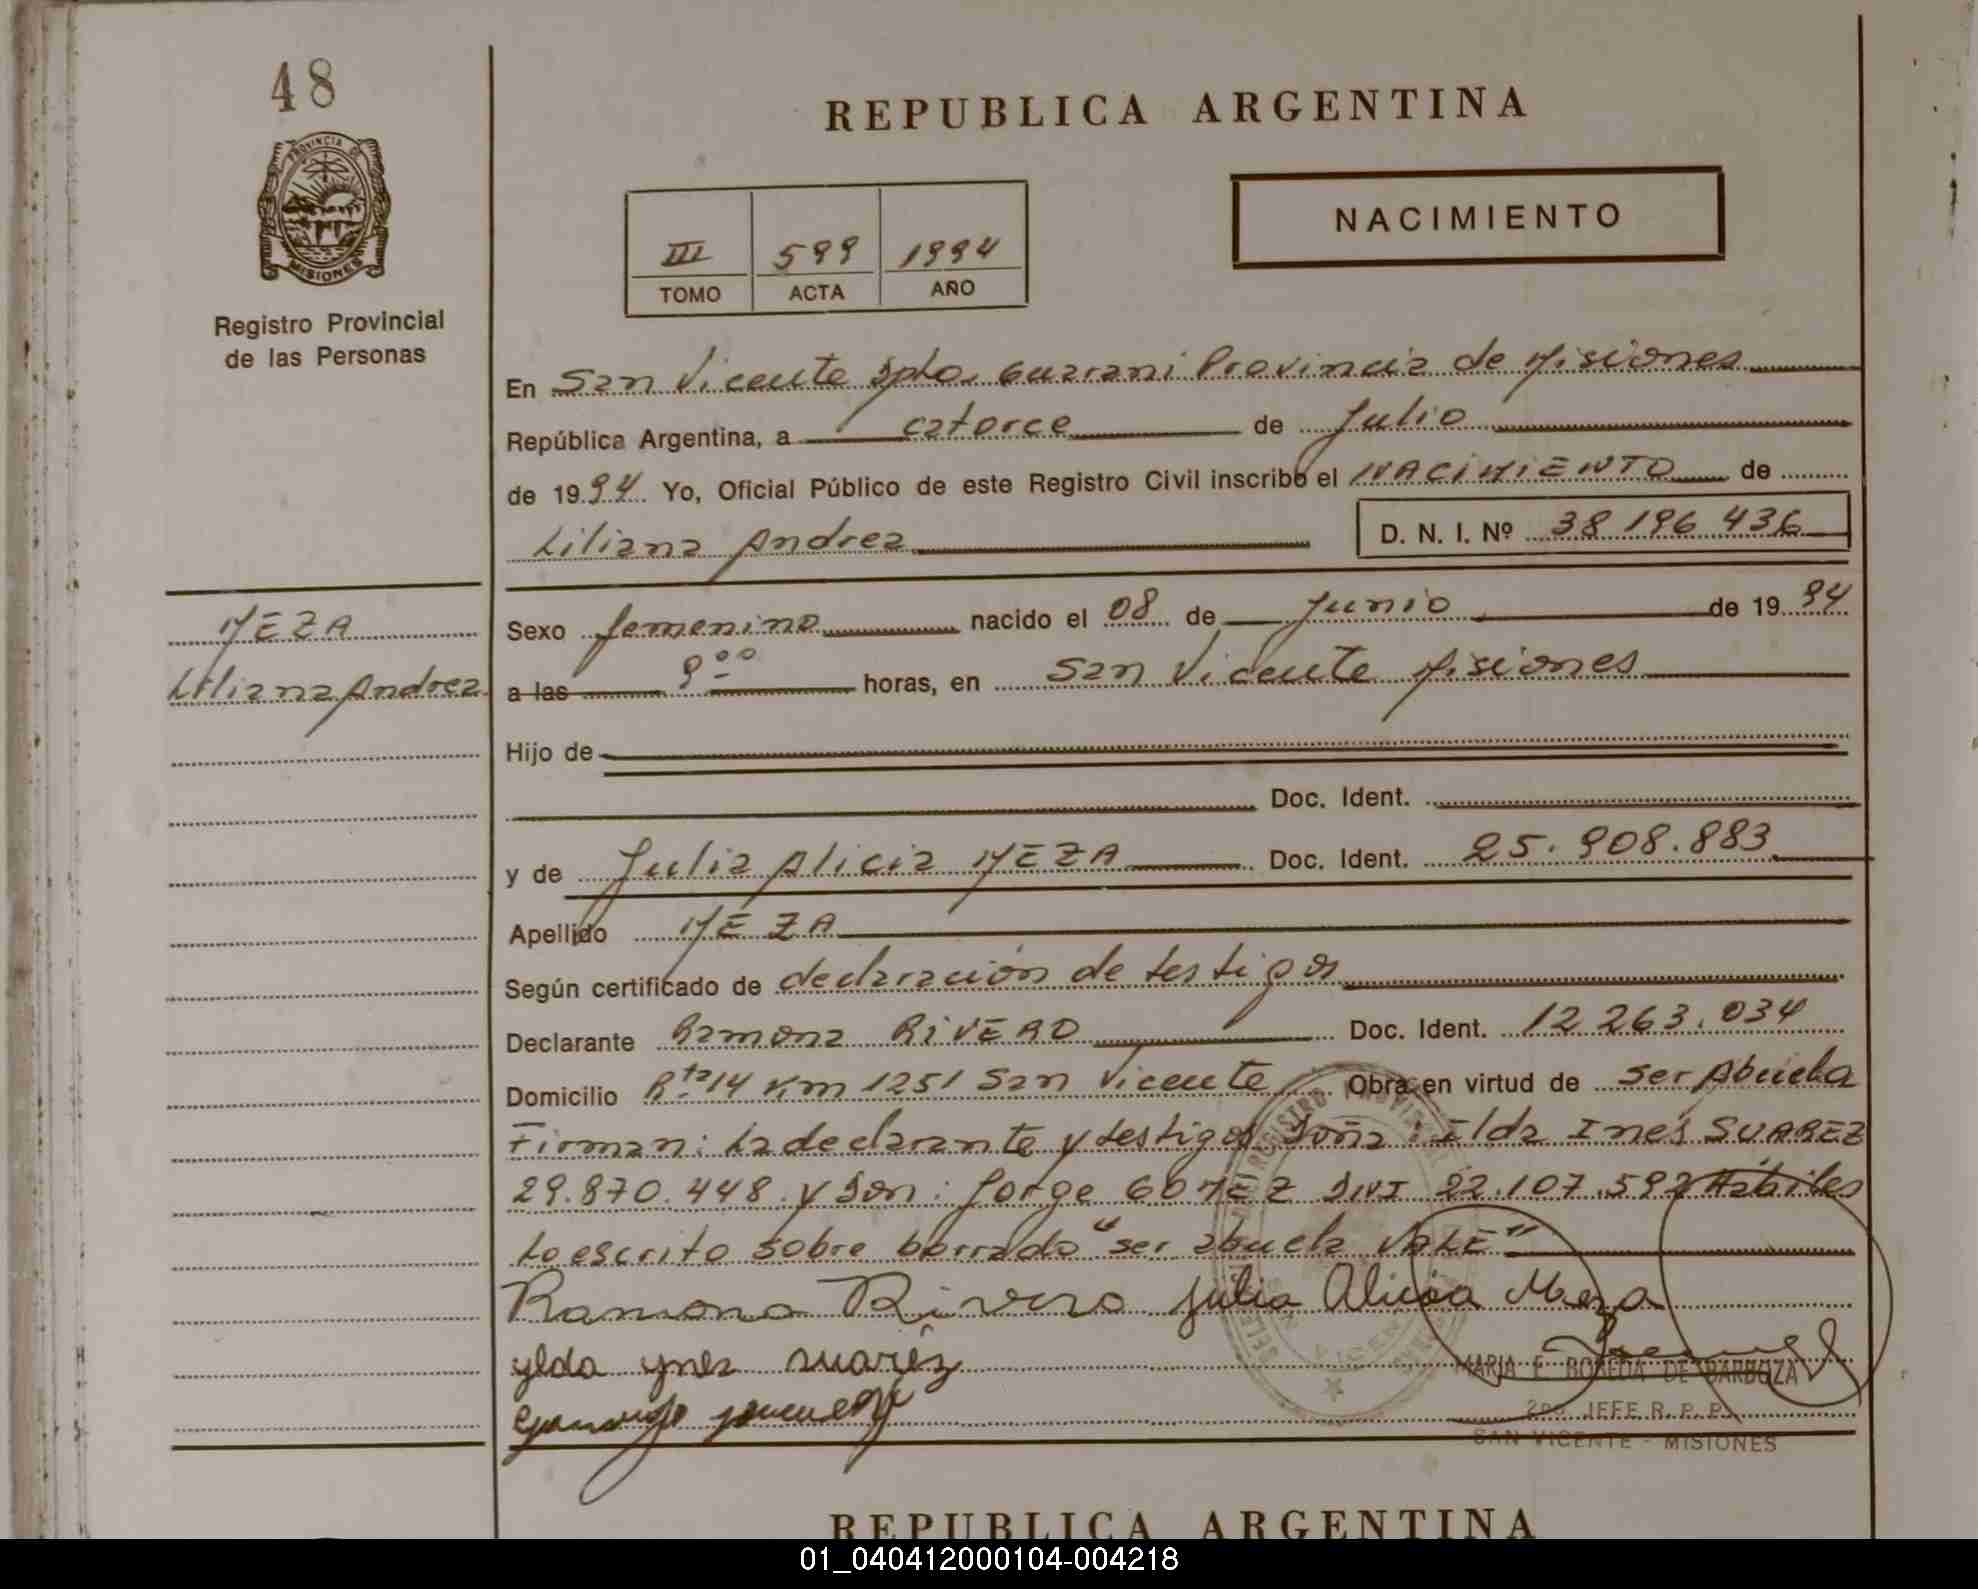 48
PROVINCIA DE
MISIONES
Registro Provincial
de las Personas
REPUBLICA ARGENTINA
III 599 1994
TOMO ACTA AÑO
NACIMIENTO
En San Vicente Dpto. Guarani Provincia de Misiones
República Argentina, a catorce de Julio
de 1994 Yo, Oficial Público de este Registro Civil inscribo el NACIMIENTO de
Liliana Andrea D. N. I. Nº 38 196 436
MEZA
Liliana Andrea
Sexo femenino nacido el 08 de Junio de 1994
a las 9ºº horas, en San Vicente Misiones
Hijo de
Doc. Ident.
y de Julia Alicia MEZA Doc. Ident. 25.908.883
Apellido MEZA
Según certificado de declaración de testigos
Declarante Ramona RIVERO Doc. Ident. 12 263.034
Domicilio Rta 14 Km 1251 San Vicente Obra en virtud de ser Abuela
Firman: La declarante y testigos Doña: Elda Ines SUAREZ
29.870.448 y Don: Jorge GOMEZ DNI 22.107.592 Hábiles
Lo escrito sobre borrado "ser abuela VALE"
Ramona Rivero Julia Alicia Meza
ylda ynes suarez
MARIA E. BOBEDA DE BARBOZA
2do. JEFE R. P. P.
SAN VICENTE - MISIONES
REPUBLICA ARGENTINA
01_040412000104-004218